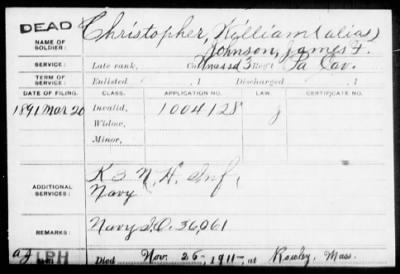 DEAD
NAME OF SOLDIER: Christopher, William (alias)
Johnson, James F.
SERVICE: Late rank, Co. Unassd 3 Reg't Pa Cav.
TERM OF SERVICE: Enlisted , 1 Discharged , 1
DATE OF FILING. CLASS. APPLICATION NO. LAW. CERTIFICATE NO.
1891 Mar 20 Invalid, 1004128 J
Widow,
Minor,
ADDITIONAL SERVICES: K 3 N.H. Inf.
Navy
REMARKS: Navy S.O. 36,061
LRH Died Nov. 26-, 1911-, at Rowley, Mass.